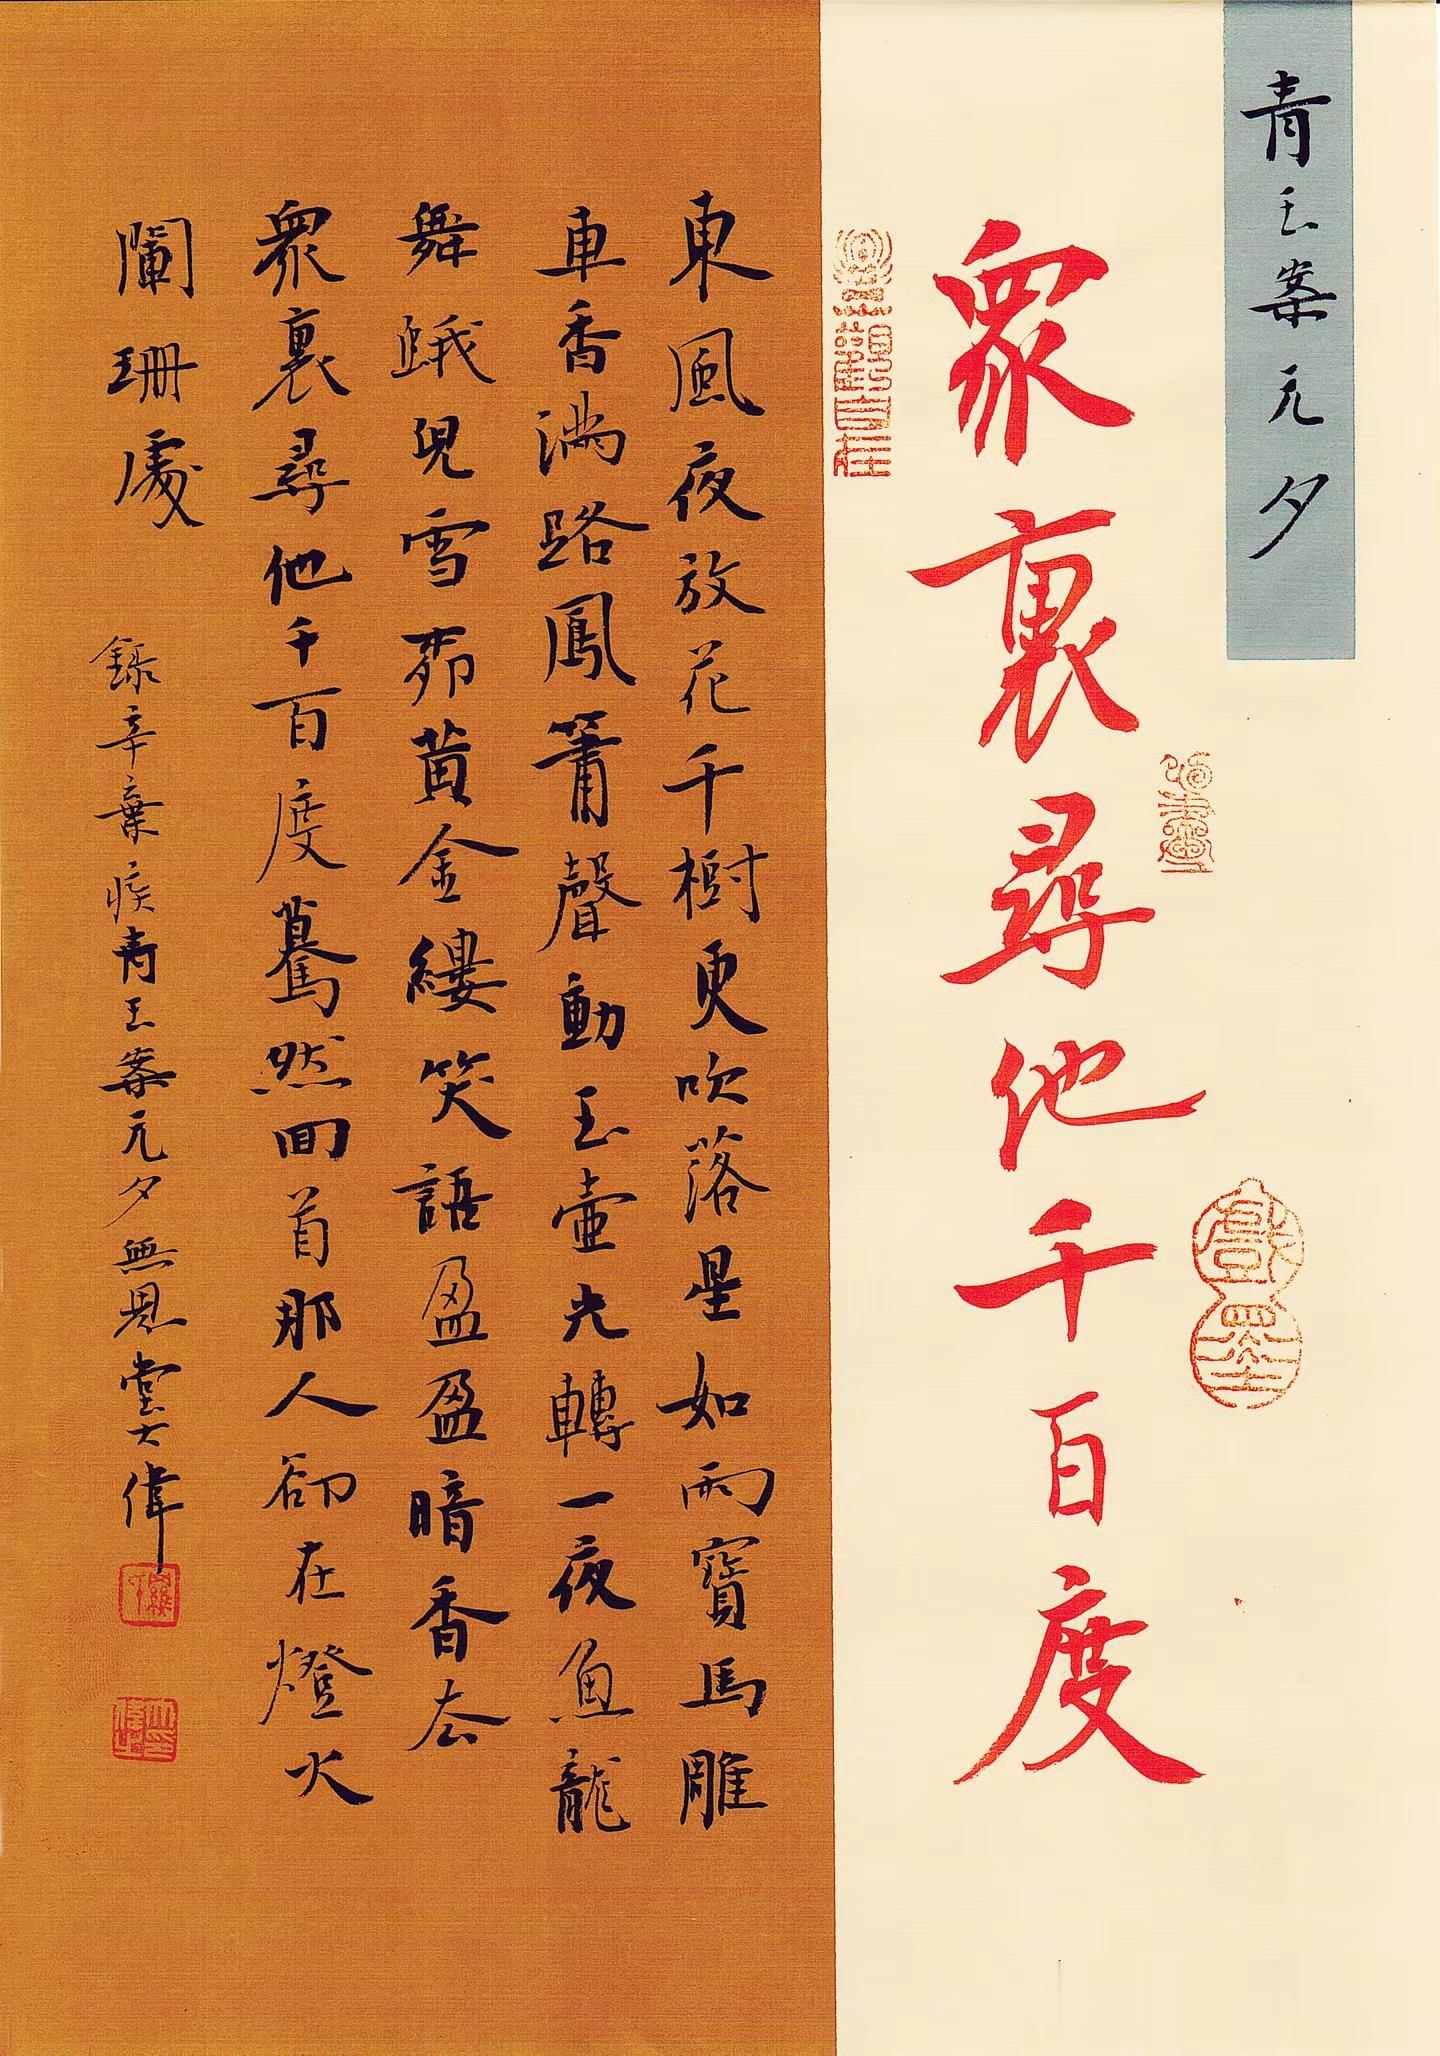 青玉案元夕
眾裏尋他千百度
東風夜放花千樹更吹落星如雨寶馬雕
車香滿路鳳簫聲動玉壺光轉一夜魚龍
舞蛾兒雪茆黃金縷笑語盈盈暗香去
眾裏尋他千百度驀然回首那人卻在燈火
闌珊處
錄辛棄疾青玉案元夕無恩堂大偉
戲墨